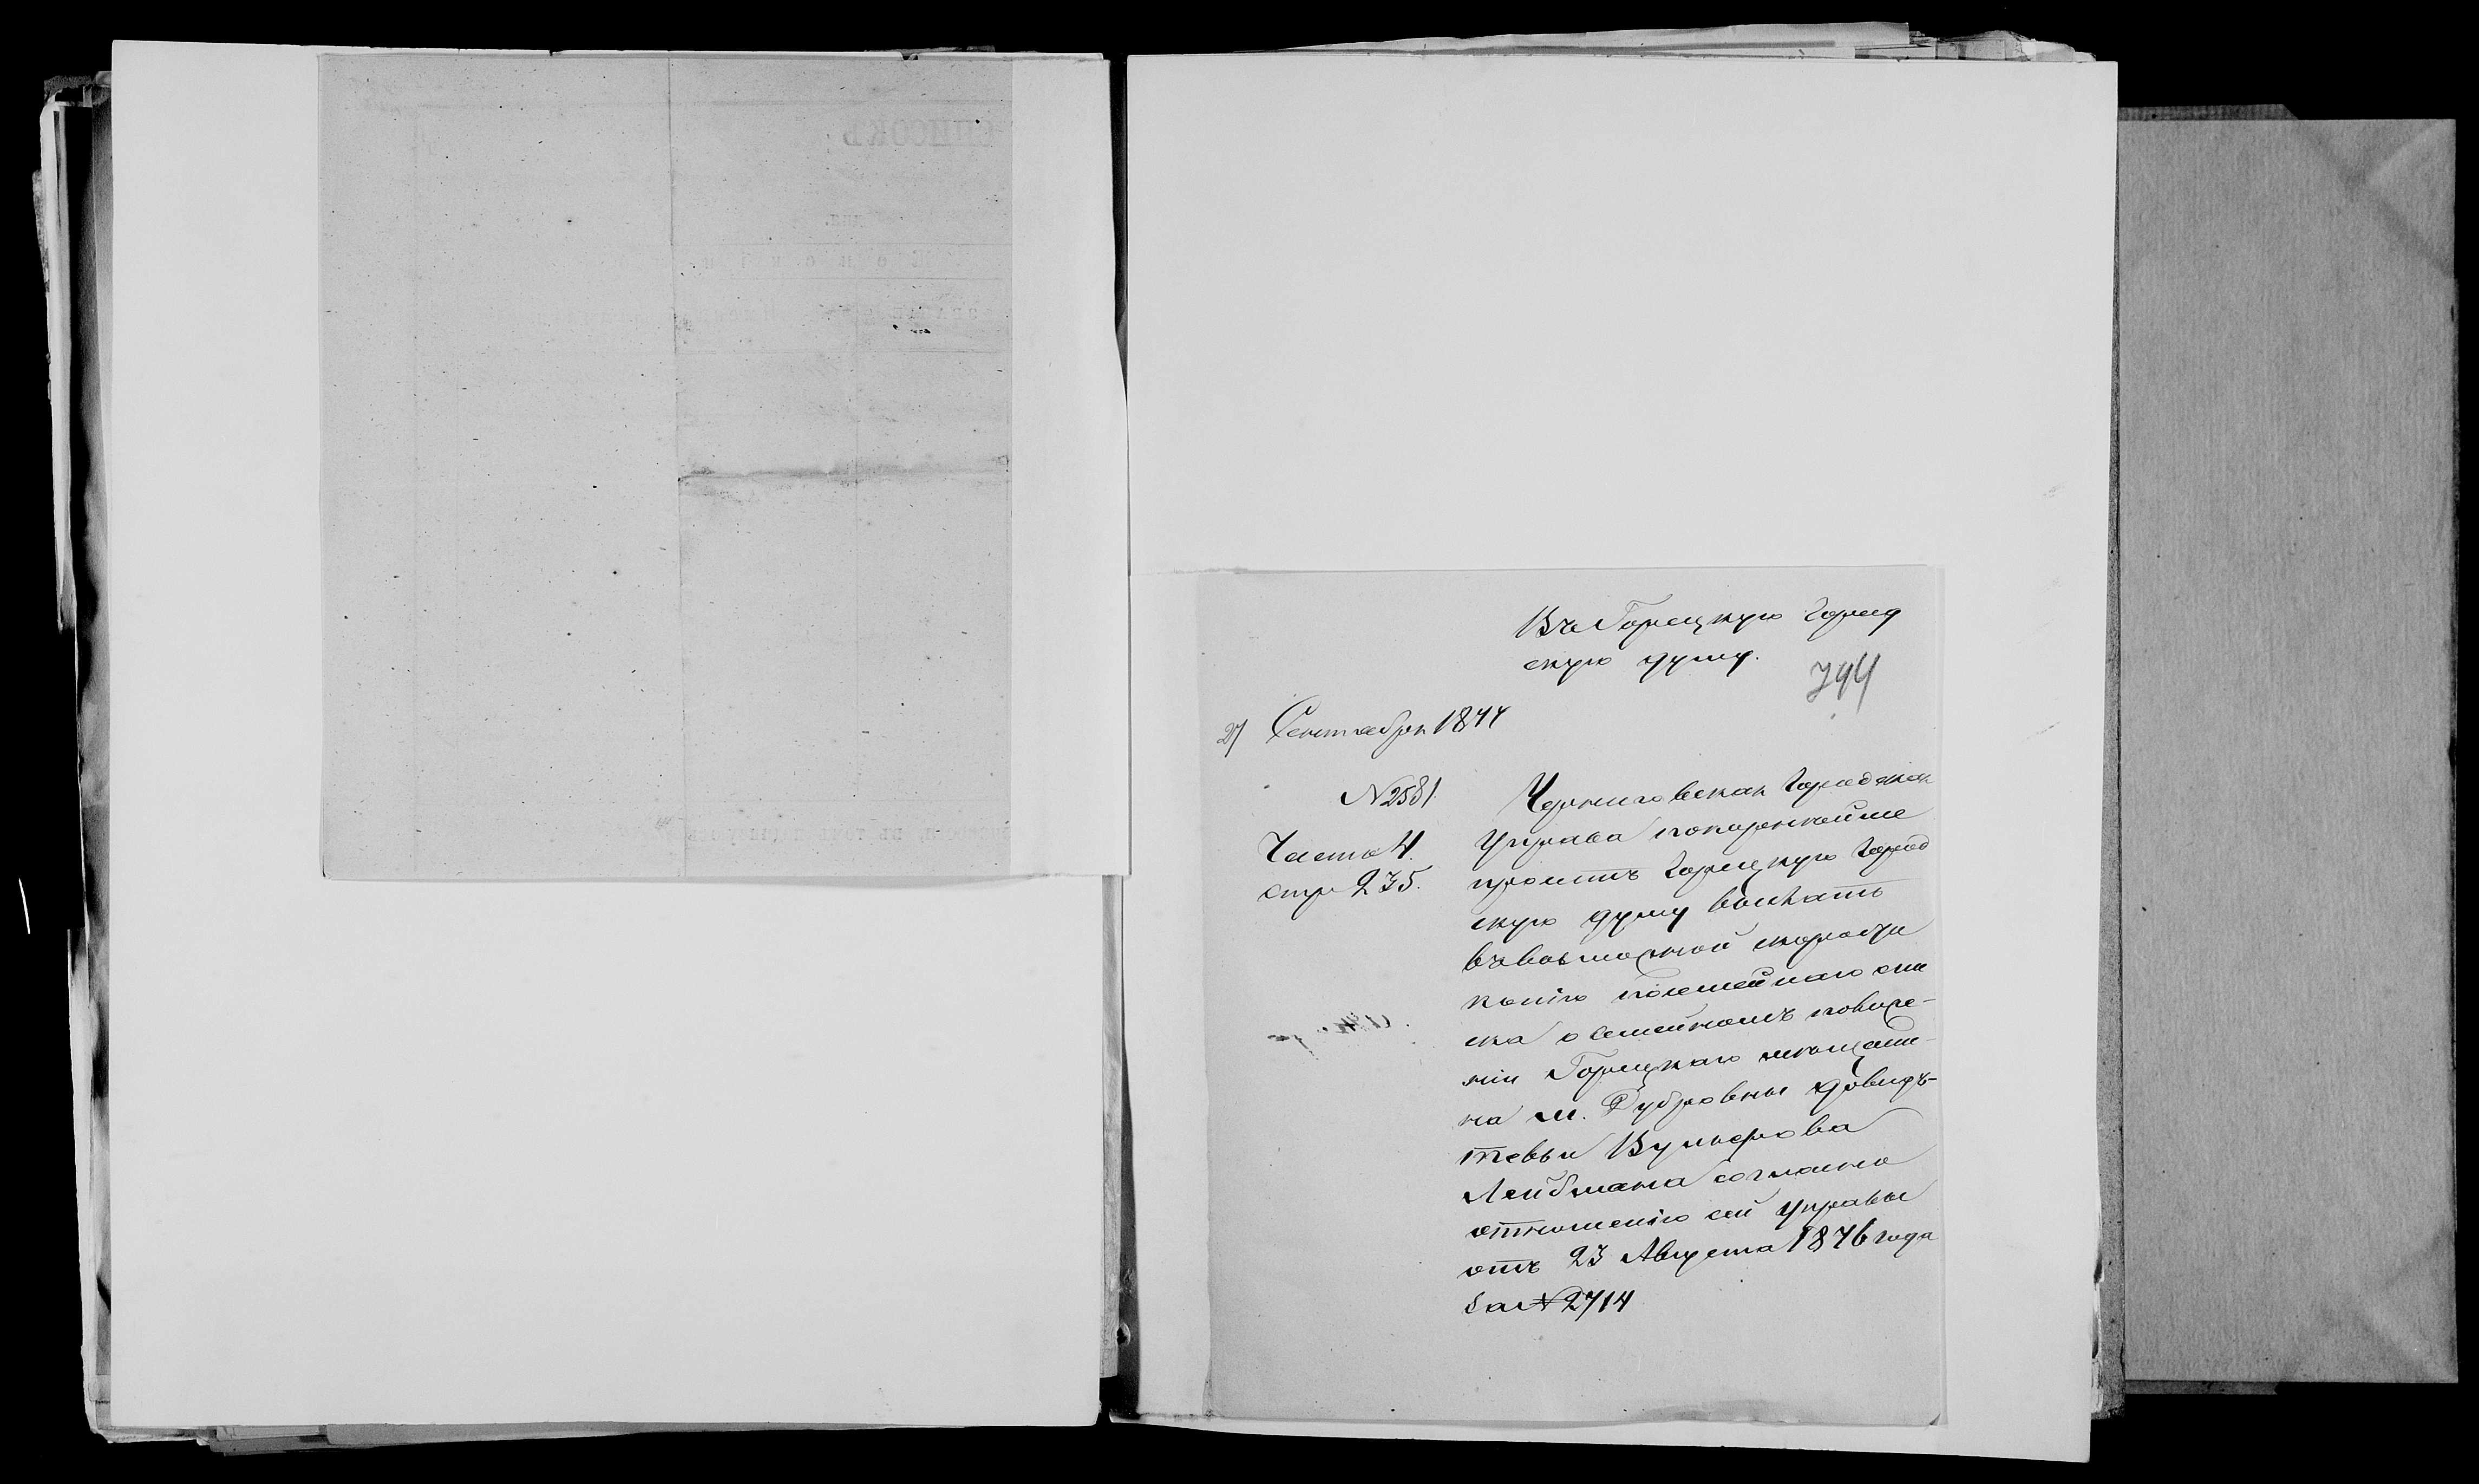 Въ Горецкую Город
скую думу.
794
27 Сентября 1877
№ 2581
Черниговская Городская
Управа покорнейше
Часть 4.
стр 235.
проситъ Горецкую Город
скую думу выслать
въ возможной скорости
копію посемейнаго спи
ска о семейномъ положе-
ніи Горецкаго мещани-
на м. Дубровны Довидъ-
Вульфова
Лейбмана согласно
отношенію сей Управы
отъ 23 Августа 1876 года
за № 2714
СПИСОКЪ